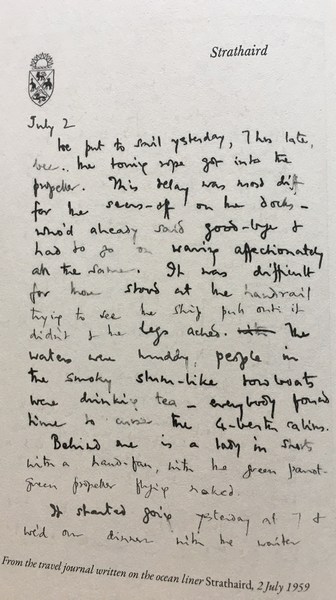 Strathaird
July 2
We put to sail yesterday, 7 hrs late,
bec. the towing rope got into the
propeller. This delay was most diff
for the seers-off on the docks –
who'd already said good-bye &
had to go on waving affectionately
all the same. It was difficult
for those stood at the handrail
trying to see the ship pull out: it
didn't & the legs ached. The
waters were muddy, people in
the smoky slum-like tow boats
were drinking tea – everybody found
time to curse the 4-berth cabins.
Behind me is a lady in
with a hand-fan, with the green parrot-
green propeller flying naked.
It started going yesterday at 7 &
we'd our dinner with the waiter
From the travel journal written on the ocean liner Strathaird, 2 July 1959